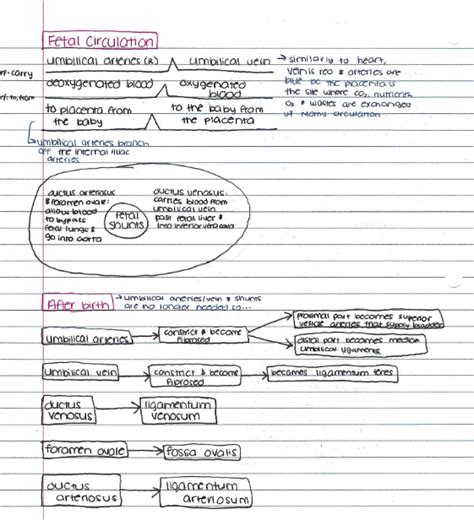 Fetal Circulation
umbilical arteries (2) umbilical vein → similarly to heart,
vein is red & arteries are
rf: carry deoxygenated blood oxygenated blood
blue bc the placenta is
the site where CO2, nutrients,
O2 & wastes are exchanged
w/ moms circulation
rf: to, from to placenta from the baby to the baby from the placenta
umbilical arteries branch
off the internal iliac
arteries
ductus arteriosus
& foramen ovale:
allow blood
to bypass
fetal lungs &
go into aorta
fetal
shunts
ductus venosus:
carries blood from
umbilical vein
past fetal liver &
into inferior vena cava
After birth → umbilical arteries/vein & shunts
are no longer needed so...
umbilical arteries → constrict & become fibrosed
proximal part becomes superior
vesicle arteries that supply bladder
distal part becomes median
umbilical ligaments
umbilical vein → constrict & become fibrosed → becomes ligamentum teres
ductus venosus → ligamentum venosum
foramen ovale → fossa ovalis
ductus arteriosus → ligamentum arteriosum